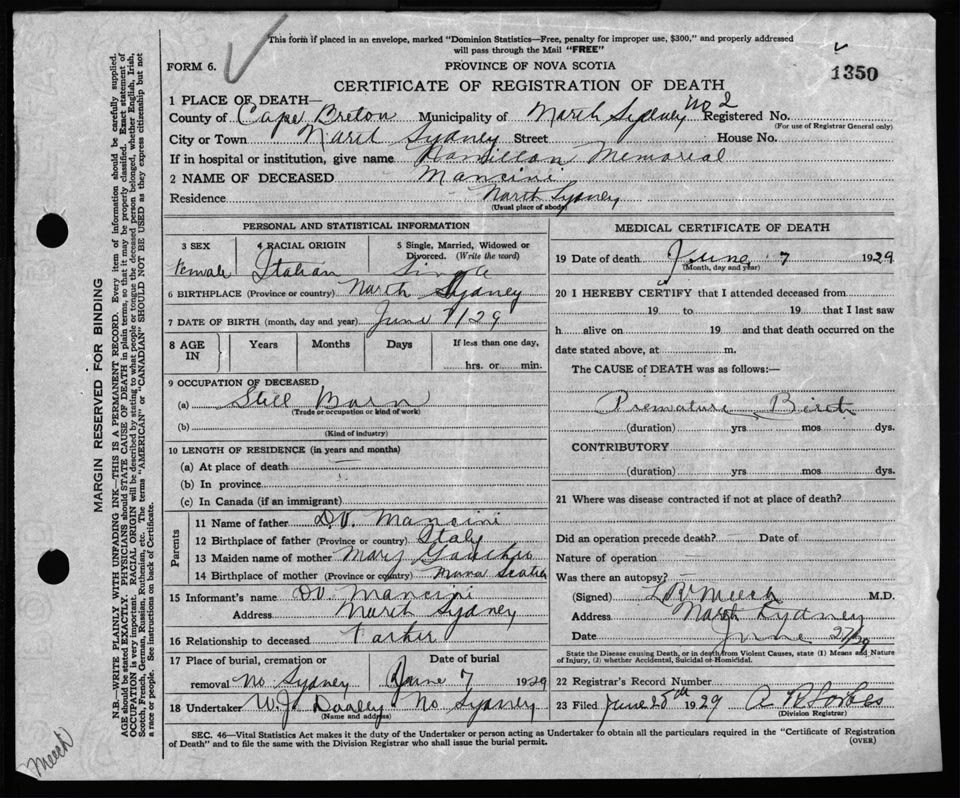 This form if placed in an envelope, marked "Dominion Statistics—Free, penalty for improper use, $300," and properly addressed
will pass through the Mail "FREE"
FORM 6.
PROVINCE OF NOVA SCOTIA
1350
CERTIFICATE OF REGISTRATION OF DEATH
1 PLACE OF DEATH—
County of Cape Breton Municipality of North Sydney No 2 Registered No.
(For use of Registrar General only)
City or Town North Sydney Street House No.
If in hospital or institution, give name Hamilton Memorial
2 NAME OF DECEASED Mancini
Residence North Sydney
(Usual place of abode)
PERSONAL AND STATISTICAL INFORMATION
3 SEX 4 RACIAL ORIGIN 5 Single, Married, Widowed or
Divorced. (Write the word)
Female Italian Single
6 BIRTHPLACE (Province or country) North Sydney
7 DATE OF BIRTH (month, day and year) June 7/29
8 AGE IN Years Months Days If less than one day,
hrs. or min.
9 OCCUPATION OF DECEASED
(a) Still Born
(Trade or occupation or kind of work)
(b)
(Kind of industry)
10 LENGTH OF RESIDENCE (in years and months)
(a) At place of death
(b) In province
(c) In Canada (if an immigrant)
Parents
11 Name of father D.V. Mancini
12 Birthplace of father (Province or country) Italy
13 Maiden name of mother Mary
14 Birthplace of mother (Province or country) Nova Scotia
15 Informant's name D.V. Mancini
Address North Sydney
16 Relationship to deceased Father
17 Place of burial, cremation or Date of burial
removal No Sydney June 7 1929
18 Undertaker W.J. Dooley No Sydney
(Name and address)
MEDICAL CERTIFICATE OF DEATH
19 Date of death June 7 1929
(Month, day and year)
20 I HEREBY CERTIFY that I attended deceased from
19 to 19 that I last saw
h alive on 19 and that death occurred on the
date stated above, at m.
The CAUSE of DEATH was as follows:—
Premature Birth
(duration) yrs mos dys.
CONTRIBUTORY
(duration) yrs mos dys.
21 Where was disease contracted if not at place of death?
Did an operation precede death? Date of
Nature of operation
Was there an autopsy?
(Signed) Meech M.D.
Address North Sydney
Date June 27/29
State the Disease causing Death, or in death from Violent Causes, state (1) Means and Nature
of Injury, (2) whether Accidental, Suicidal or Homicidal.
22 Registrar's Record Number
23 Filed June 28th 1929 A R Forbes
(Division Registrar)
SEC. 46—Vital Statistics Act makes it the duty of the Undertaker or person acting as Undertaker to obtain all the particulars required in the "Certificate of Registration
of Death" and to file the same with the Division Registrar who shall issue the burial permit. (OVER)
MARGIN RESERVED FOR BINDING
N.B.—WRITE PLAINLY WITH UNFADING INK—THIS IS A PERMANENT RECORD. Every item of information should be carefully supplied.
AGE should be stated EXACTLY. PHYSICIANS should STATE CAUSE OF DEATH in plain terms, so that it may be properly classified. Exact statement of
OCCUPATION is very important. RACIAL ORIGIN will be described by stating to what people or tongue the deceased person belonged, whether English, Irish,
Scotch, French, German, Russian, Ruthenian, etc. The terms "AMERICAN" or "CANADIAN" SHOULD NOT BE USED as they express citizenship but not
a race or people. See instructions on back of Certificate.
Meech